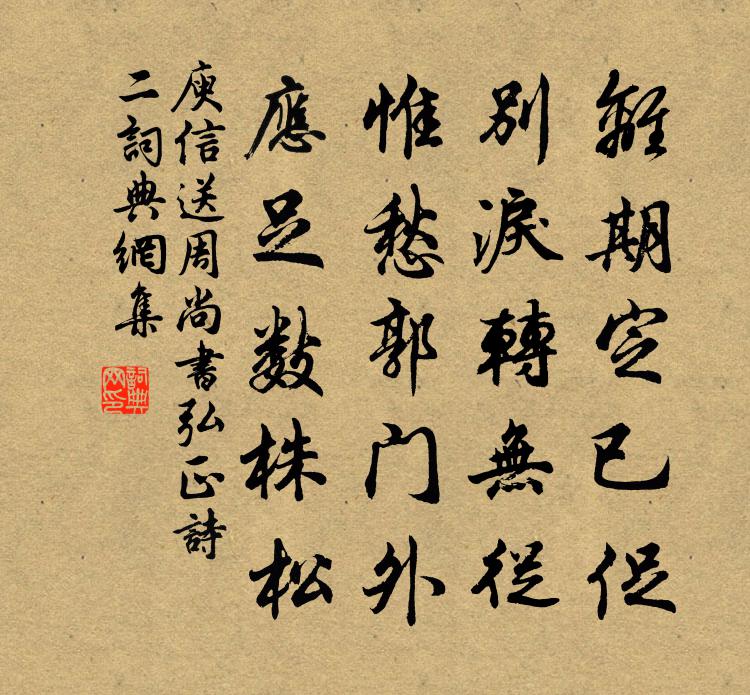 離期定已促
別淚轉無從
惟愁郭门外
應足數株松
庾信送周尚書弘正詩
二詞典網集
詞典
网印